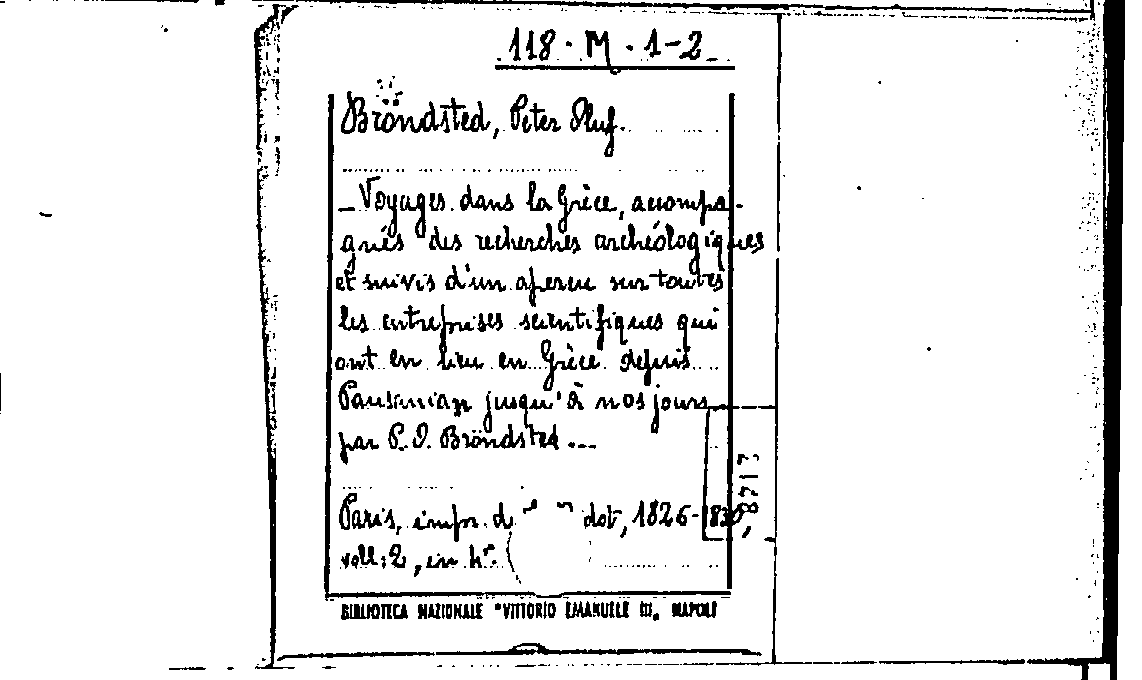 118. M. 1-2
Bröndsted, Peter Oluf.
_ Voyages dans la Grèce, accompa-
gnés des recherches archéologiques
et suivis d'un apercu sur toutes
les entreprises scientifiques qui
ont en lieu en Grèce depuis
Pausanian jusqu'à nos jours
par P. O. Bröndsted ...
Paris, impr. d dot, 1826-1830,
voll: 2, in 4°.
BIBLIOTECA NAZIONALE "VITTORIO EMANUELE III, NAPOLI
8717